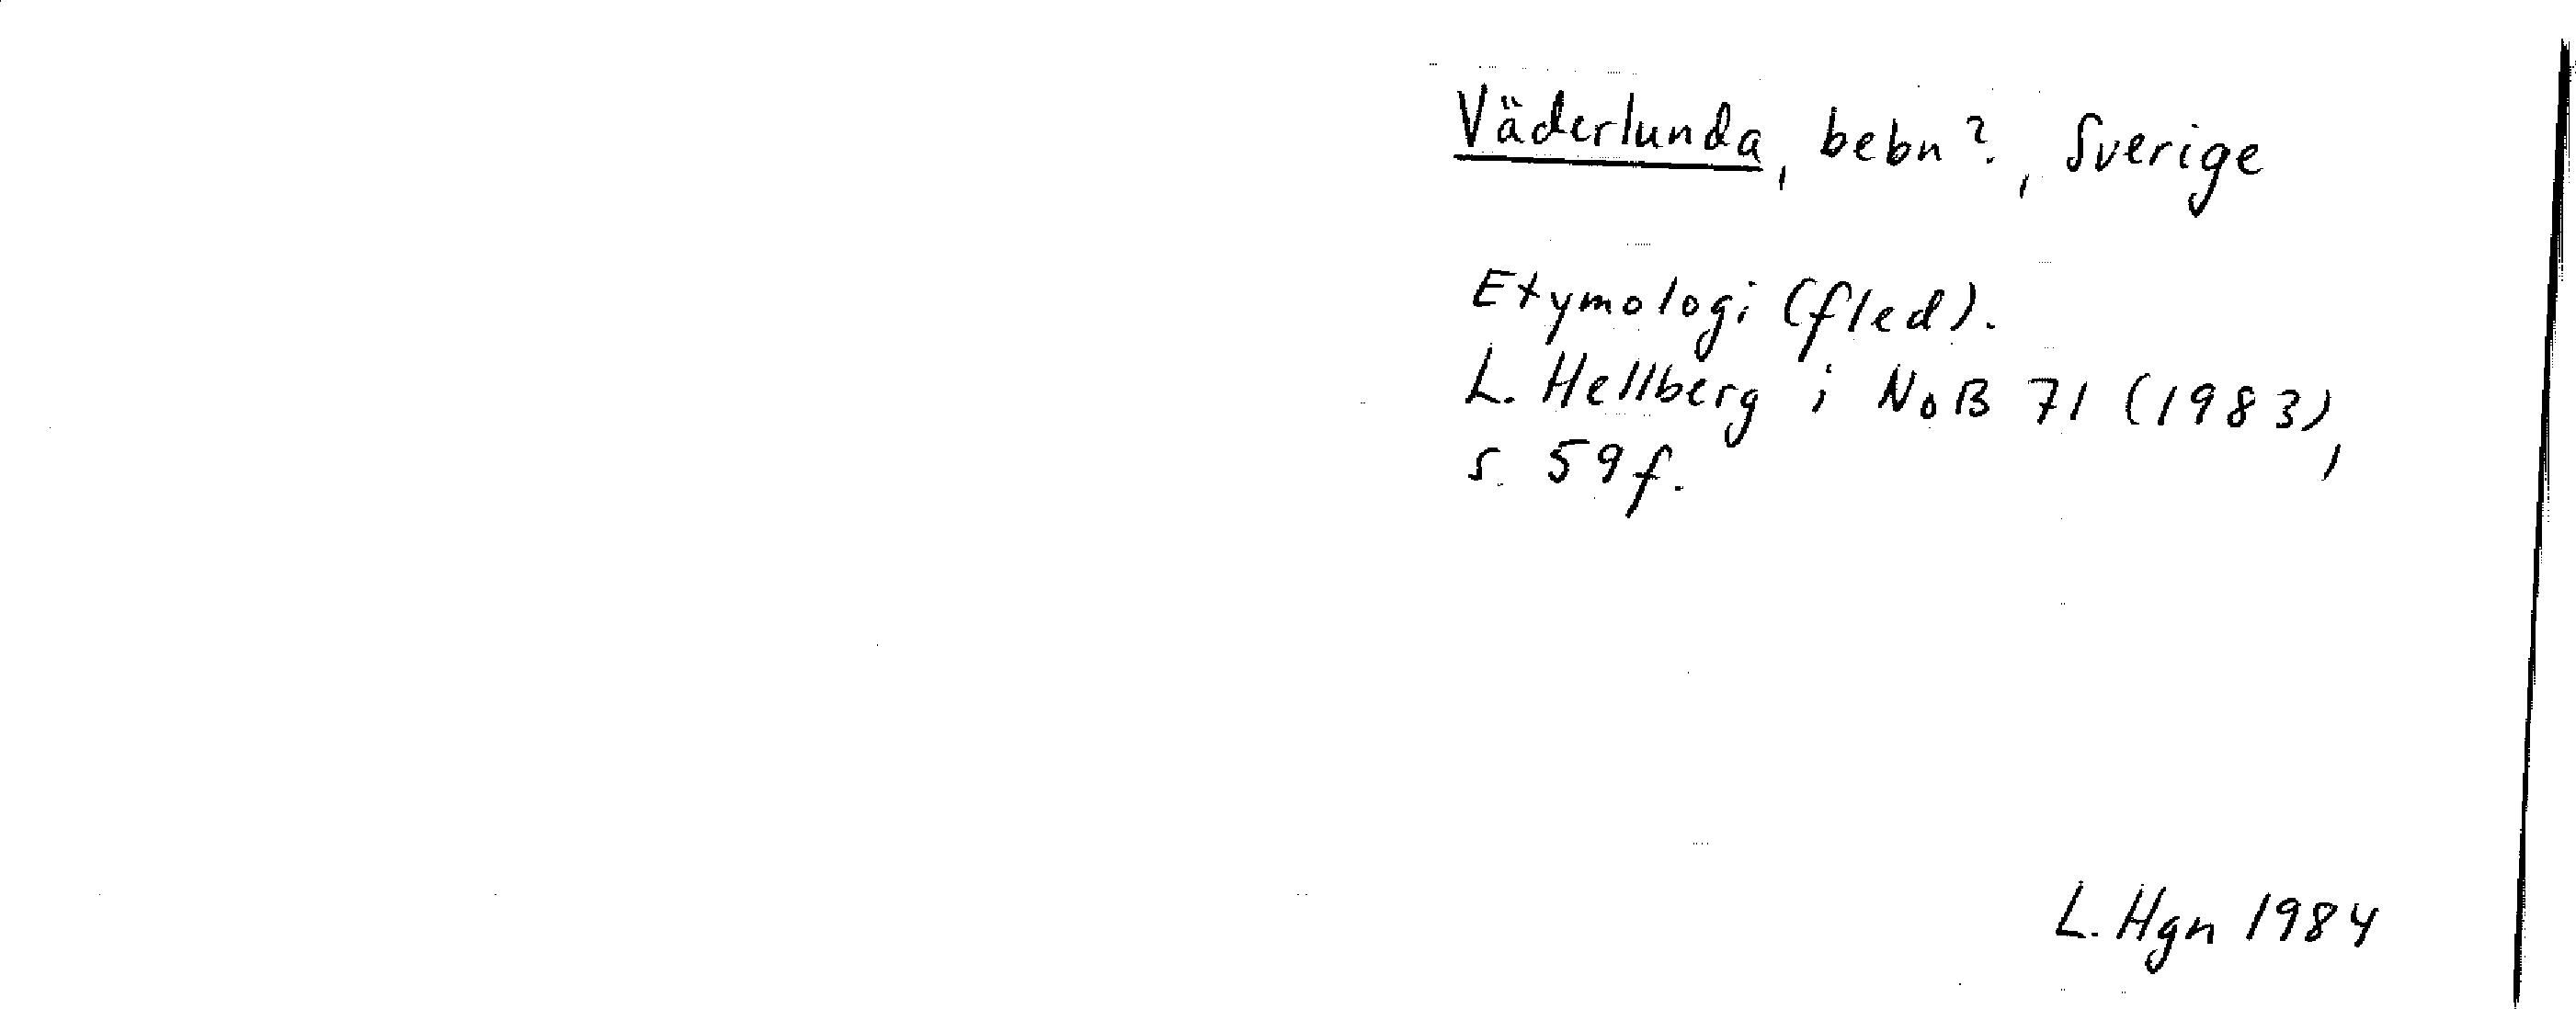 Väderlunda, bebn?, Sverige
Etymologi (fled).
L. Hellberg i NoB 71 (1983),
s. 59f.
L. Hgn 1984